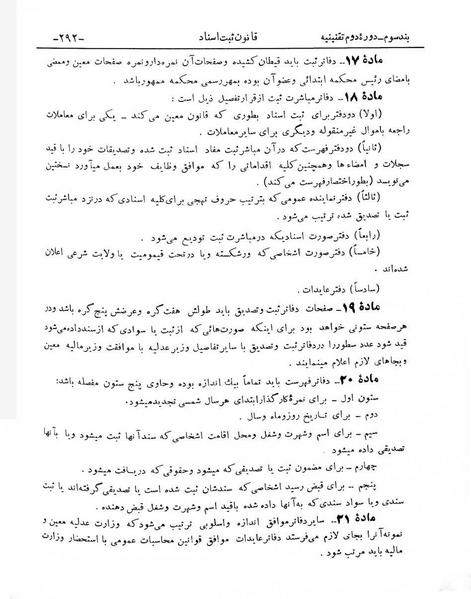 بند سوم – دورۀ دوم تقنینیه
قانون ثبت اسناد
–۲۹۲–
مادۀ ۱۷ـ دفاتر ثبت باید قیطان کشیده و صفحات آن نمره دار و نمره صفحات معین و ممضی
بامضای رئیس محکمه ابتدائی و عضو آن بوده بمهر رسمی محکمه ممهور باشد.
مادۀ ۱۸ـ دفاتر مباشرت ثبت از قرار تفصیل ذیل است:
(اولاً) دو دفتر برای ثبت اسناد بطوری که قانون معین میکند ـ یکی برای معاملات
راجعه باموال غیرمنقوله و دیگری برای سایر معاملات.
(ثانیاً) دو دفتر فهرست که در آن مباشر ثبت مفاد اسناد ثبت شده و تصدیقات خود را با قید
سجلات و امضاءها و همچنین کلیه اقداماتی را که موافق وظایف خود بعمل میآورد نسختین
می‌نویسد (بطور اختصار فهرست میکند).
(ثالثاً) دفتر نماینده عمومی که بترتیب حروف تهجی برای کلیه اسنادی که در نزد مباشر ثبت
ثبت یا تصدیق شده ترتیب می‌شود.
(رابعاً) دفتر صورت اسنادیکه در مباشرت ثبت تودیع می‌شود.
(خامساً) دفتر صورت اشخاصی که ورشکسته و یا در تحت قیمومیت یا ولایت شرعی اعلان
شده‌اند.
(سادساً) دفتر عایدات.
مادۀ ۱۹ـ صفحات دفاتر ثبت و تصدیق باید طولش هفت گره و عرضش پنج گره باشد و در
هر صفحه ستونی خواهد بود برای اینکه صورت‌هائی که از ثبت یا سوادی که از سند داده می‌شود
قید شود عدد سطور را در دفاتر ثبت و تصدیق با سایر تفاصیل وزیر عدلیه با موافقت وزیر مالیه معین
و بجاهای لازم اعلام مینمایند.
مادۀ ۲۰ـ دفاتر فهرست باید تماماً بیک اندازه بوده و حاوی پنج ستون مفصله باشد:
ستون اول ـ برای نمرۀ کارگذار ابتدای هر سال شمسی تجدید میشود.
دوم ـ برای تاریخ روز و ماه و سال.
سیم ـ برای اسم و شهرت و شغل و محل اقامت اشخاصی که سند آنها ثبت میشود و یا بآنها
تصدیقی داده میشود.
چهارم ـ برای مضمون ثبت یا تصدیقی که میشود و حقوقی که دریافت میشود.
پنجم ـ برای قبض رسید اشخاصی که سندشان ثبت شده است یا تصدیقی گرفته‌اند یا ثبت
سندی و یا سواد سندی که به آنها داده شده باقید اسم و شهرت و شغل قبض دهنده.
مادۀ ۲۱ـ سایر دفاتر موافق اندازه و اسلوبی ترتیب می‌شود که وزارت عدلیه معین و
نمونه آنرا بجای لازم میفرستد دفاتر عایدات موافق قوانین محاسبات عمومی با استحضار وزارت
مالیه باید مرتب شود.